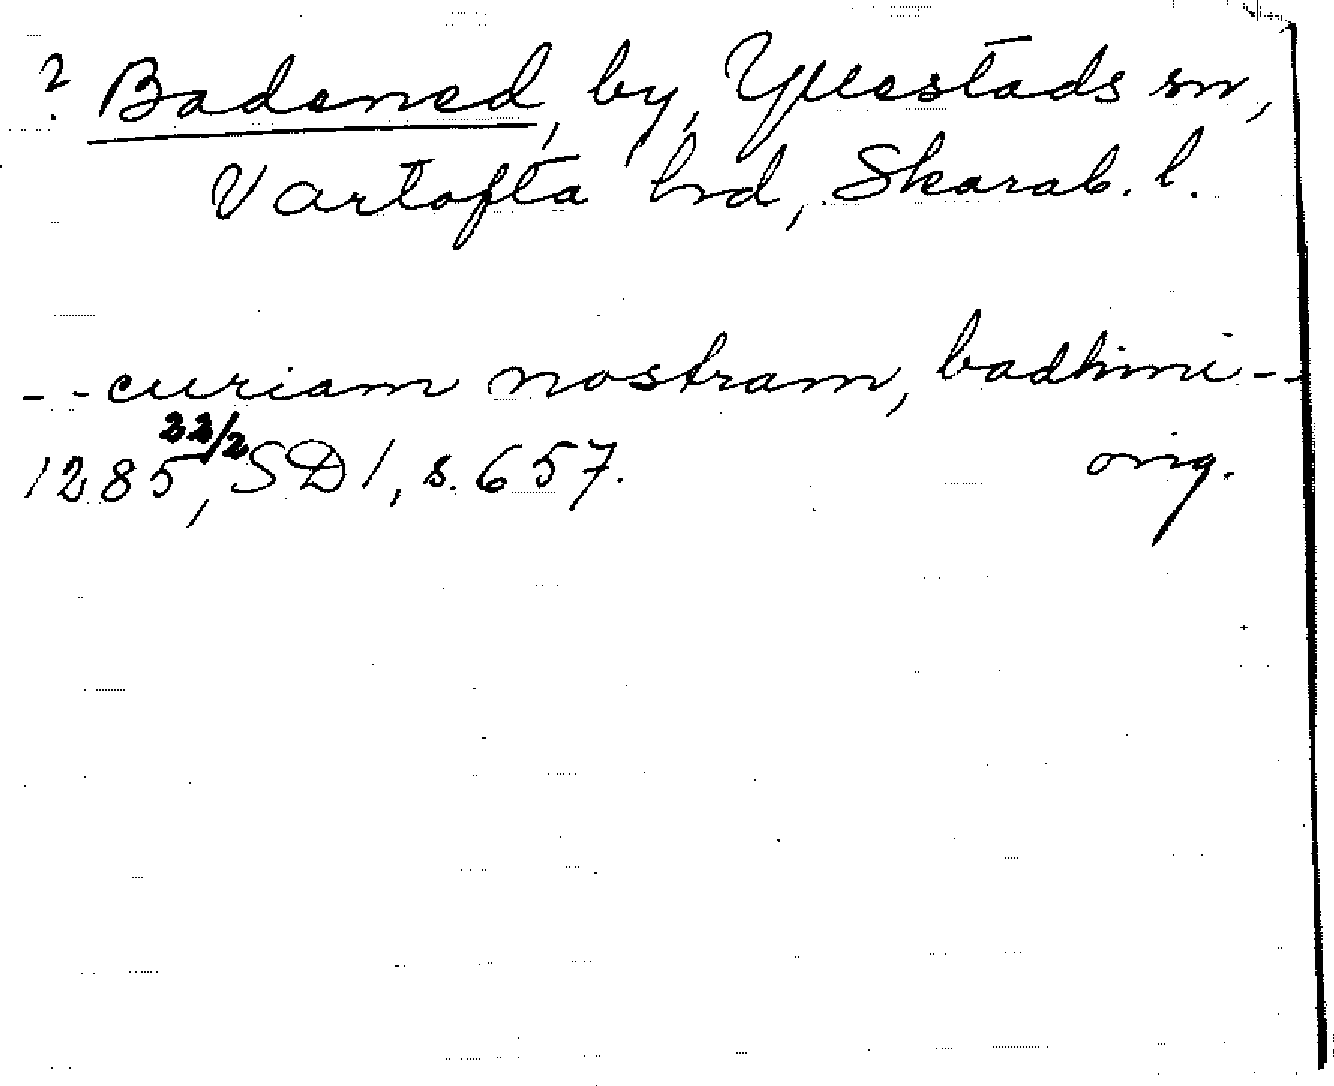 ? Badened, by, Yllestads sn,
Vartofta hrd, Skarab. l.
- - curiam nostram, badhimi - -
1285 22/2, SD 1, s. 657. orig.